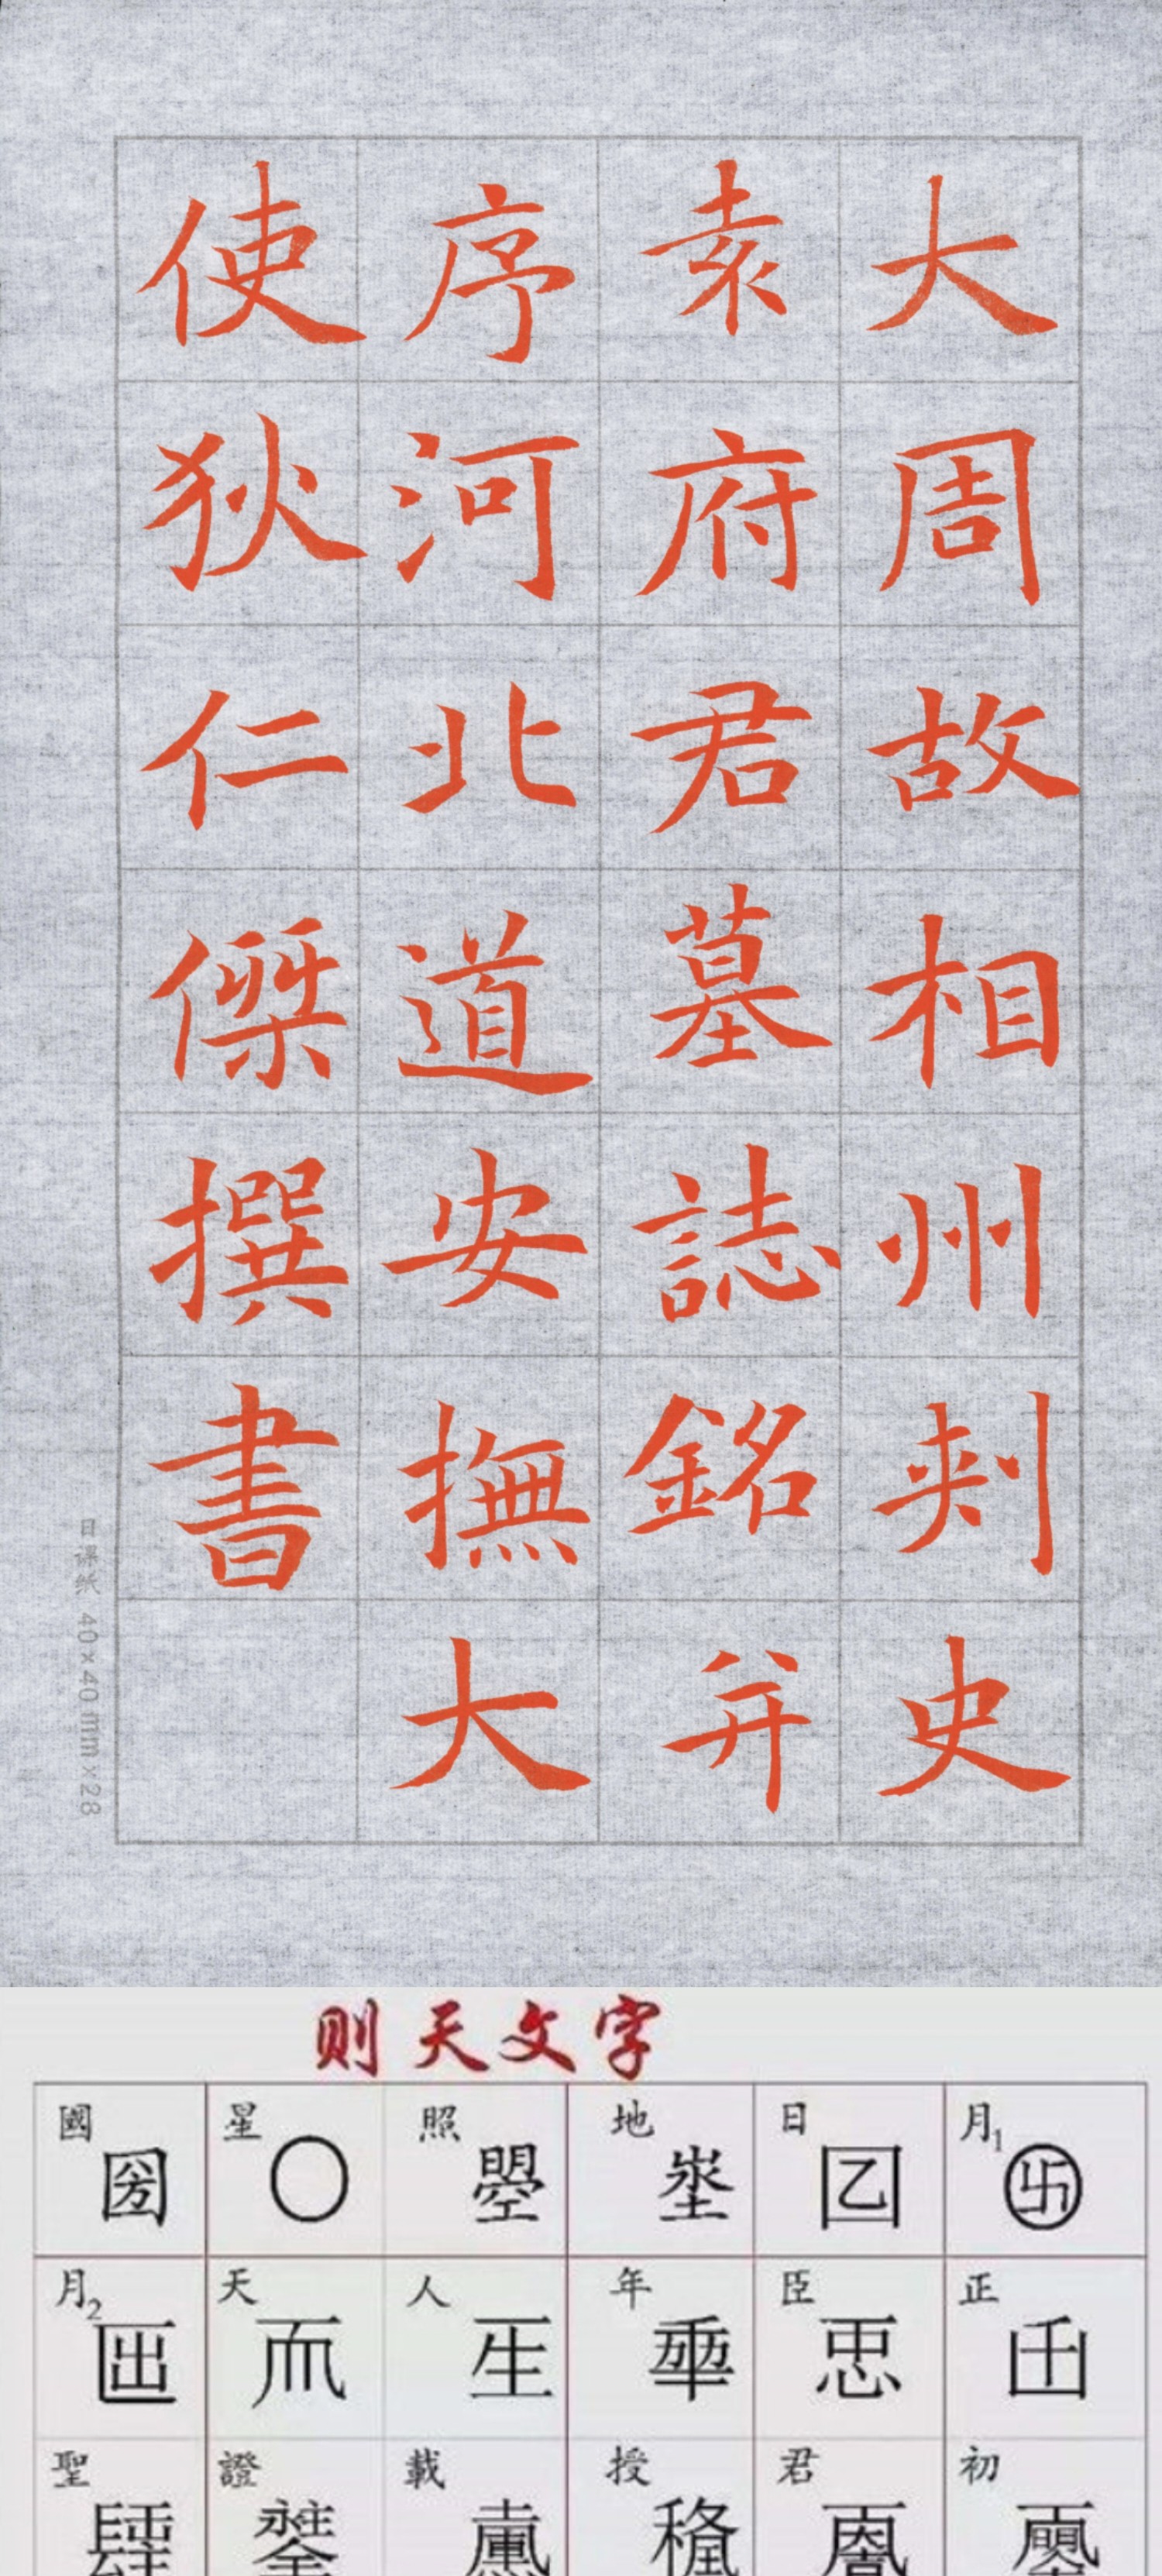 大周故相州刾史
袁府君墓誌銘并
序河北道安撫大
使狄仁傑撰書
日课纸 40×40mm×28
则天文字
國 圀 星 〇 照 曌 地 埊 日 囜 月1 卍
月2 囝 天 𠀑 人 𤯔 年 𠡦 臣 𢘑 正 𠙺
聖 證 載 授 君 初